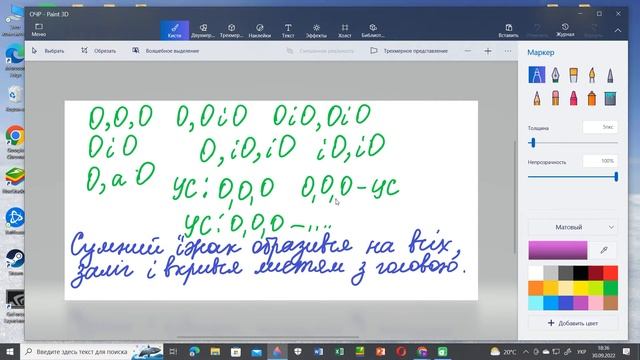 ОЧР - Paint 3D
Меню
Кисти
Текст
Эффекты
Холст
Вставить
Отменить
Журнал
Вернуть
Выбрать
Обрезать
Волшебное выделение
Смешанная реальность
Трехмерное представление
Маркер
Толщина
5пкс
Непрозрачность
100%
Матовый
Добавить цвет
О, О, О О, О і О О і О, О і О
О і О О, і О, і О і О, і О
О, а О УС: О, О, О О, О, О – УС
УС: О, О, О – ....
Сумний їжак образився на всіх,
заліг і вкрився листям з головою.
Введите здесь текст для поиска
20°C
УКР
18:36
30.09.2022